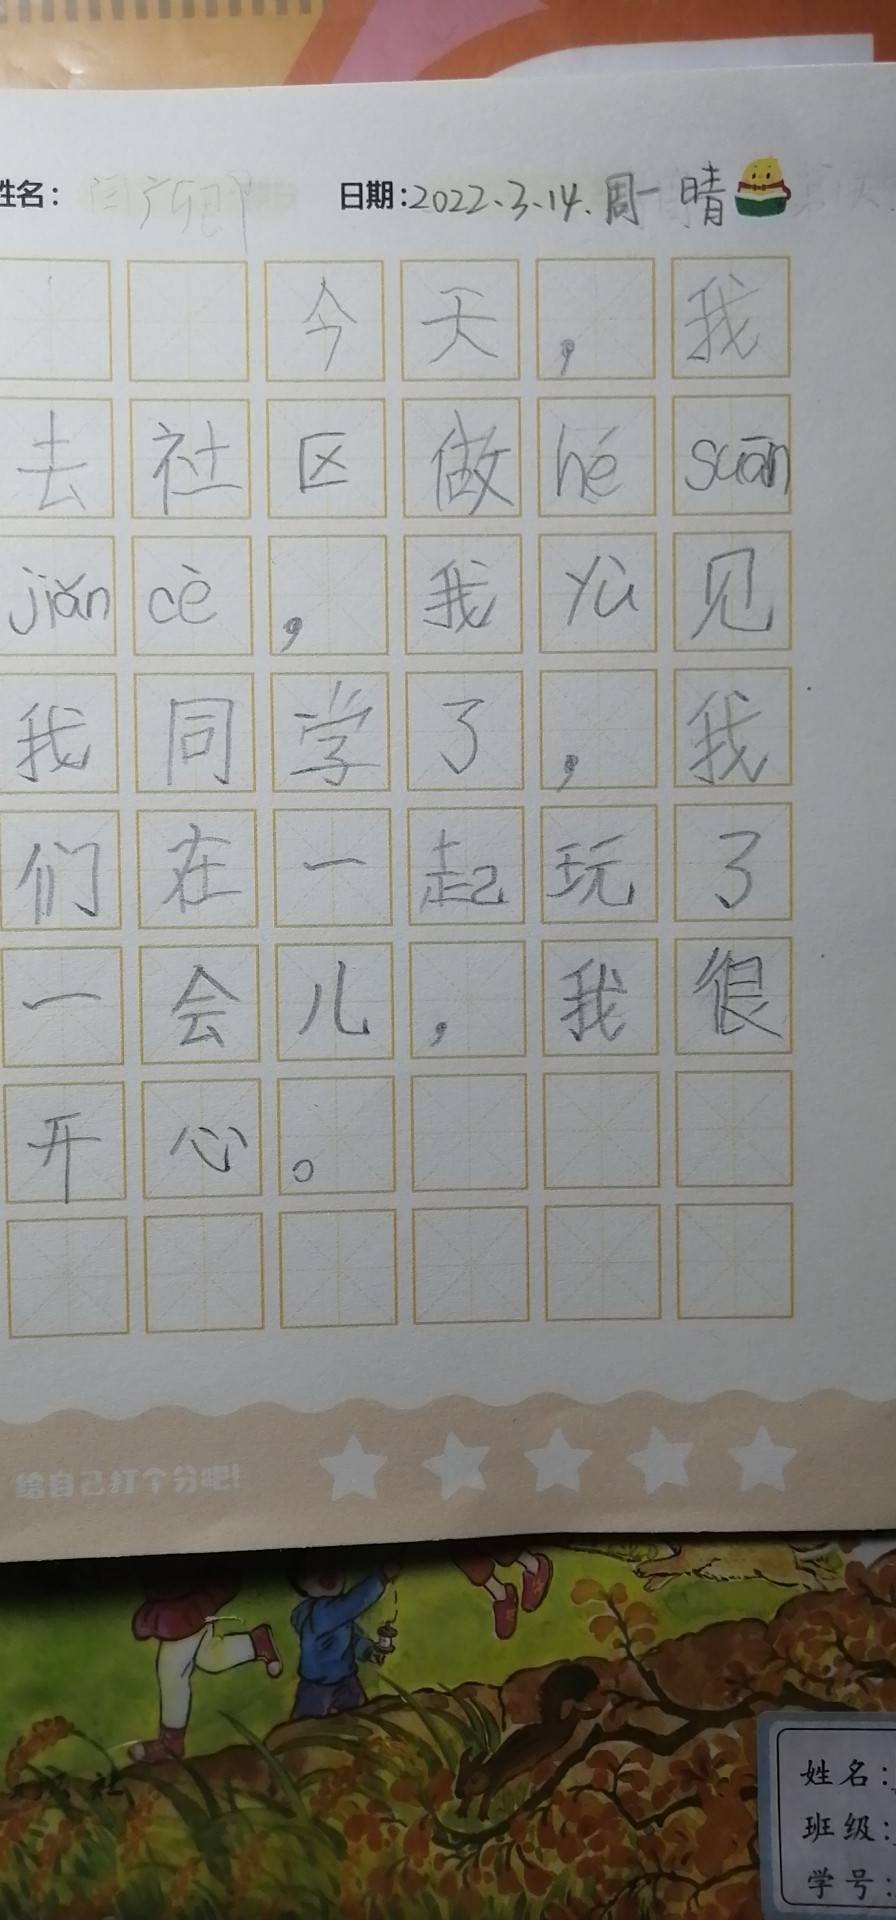 姓名： 日期：2022.3.14.周一 晴
今天，我
去社区做hé suān
jiǎn cè，我 yù 见
我同学了，我
们在一起玩了
一会儿，我很
开心。
给自己打个分吧！
姓名：
班级：
学号：